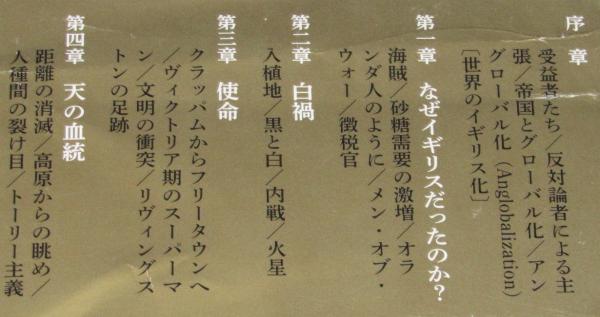 序　章
受益者たち／反対論者による主
張／帝国とグローバル化／アン
グローバル化（Anglobalization）
〔世界のイギリス化〕
第一章　なぜイギリスだったのか？
海賊／砂糖需要の激増／オラ
ンダ人のように／メン・オブ・
ウォー／徴税官
第二章　白禍
入植地／黒と白／内戦／火星
第三章　使命
クラッパムからフリータウンへ
／ヴィクトリア期のスーパーマ
ン／文明の衝突／リヴィングス
トンの足跡
第四章　天の血統
距離の消滅／高原からの眺め／
人種間の裂け目／トーリー主義